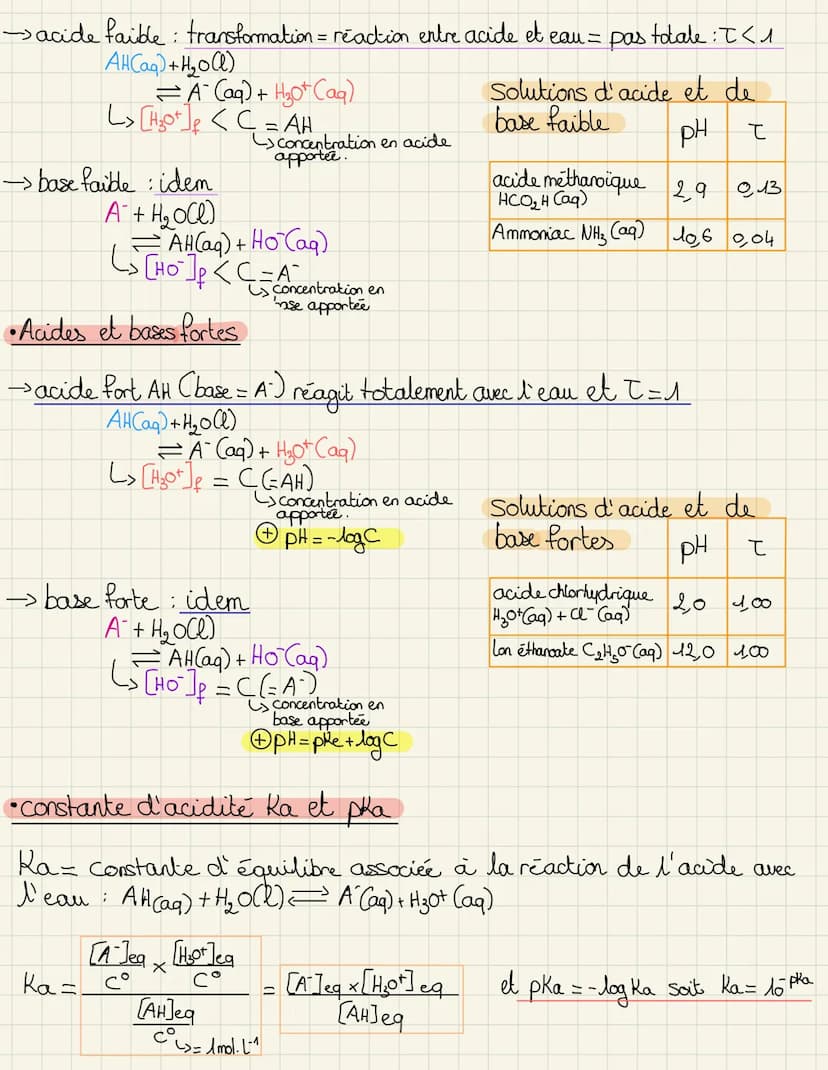 → acide faible : transformation = réaction entre acide et eau = pas totale : τ < 1
AH(aq) + H₂O(l)
⇌ A⁻(aq) + H₃O⁺(aq)
↳ [H₃O⁺]f < C = AH
↳ concentration en acide
apportée.
Solutions d'acide et de
base faible
pH τ
acide méthanoïque
HCO₂H (aq)
2,9 0,13
Ammoniac NH₃ (aq) 10,6 0,04
→ base faible : idem
A⁻ + H₂O(l)
⇌ AH(aq) + HO⁻(aq)
↳ [HO⁻]f < C = A⁻
↳ concentration en
base apportée
• Acides et bases fortes
→ acide fort AH (base = A⁻) réagit totalement avec l'eau et τ = 1
AH(aq) + H₂O(l)
⇌ A⁻(aq) + H₃O⁺(aq)
↳ [H₃O⁺]f = C (= AH)
↳ concentration en acide
apportée.
⊕ pH = -log C
Solutions d'acide et de
base fortes
pH τ
acide chlorhydrique
H₃O⁺(aq) + Cl⁻(aq)
2,0 1,00
Ion éthanoate C₂H₅O⁻(aq) 12,0 1,00
→ base forte : idem
A⁻ + H₂O(l)
⇌ AH(aq) + HO⁻(aq)
↳ [HO⁻]f = C (= A⁻)
↳ concentration en
base apportée
⊕ pH = pKe + log C
• constante d'acidité Ka et pKa
Ka = constante d'équilibre associée à la réaction de l'acide avec
l'eau : AH(aq) + H₂O(l) ⇌ A⁻(aq) + H₃O⁺(aq)
Ka = ([A⁻]eq / C° × [H₃O⁺]eq / C°) / ([AH]eq / C°) = [A⁻]eq × [H₃O⁺]eq / [AH]eq et pKa = -log Ka soit Ka = 10⁻ᵖᴷᵃ
↳ = 1mol.L⁻¹